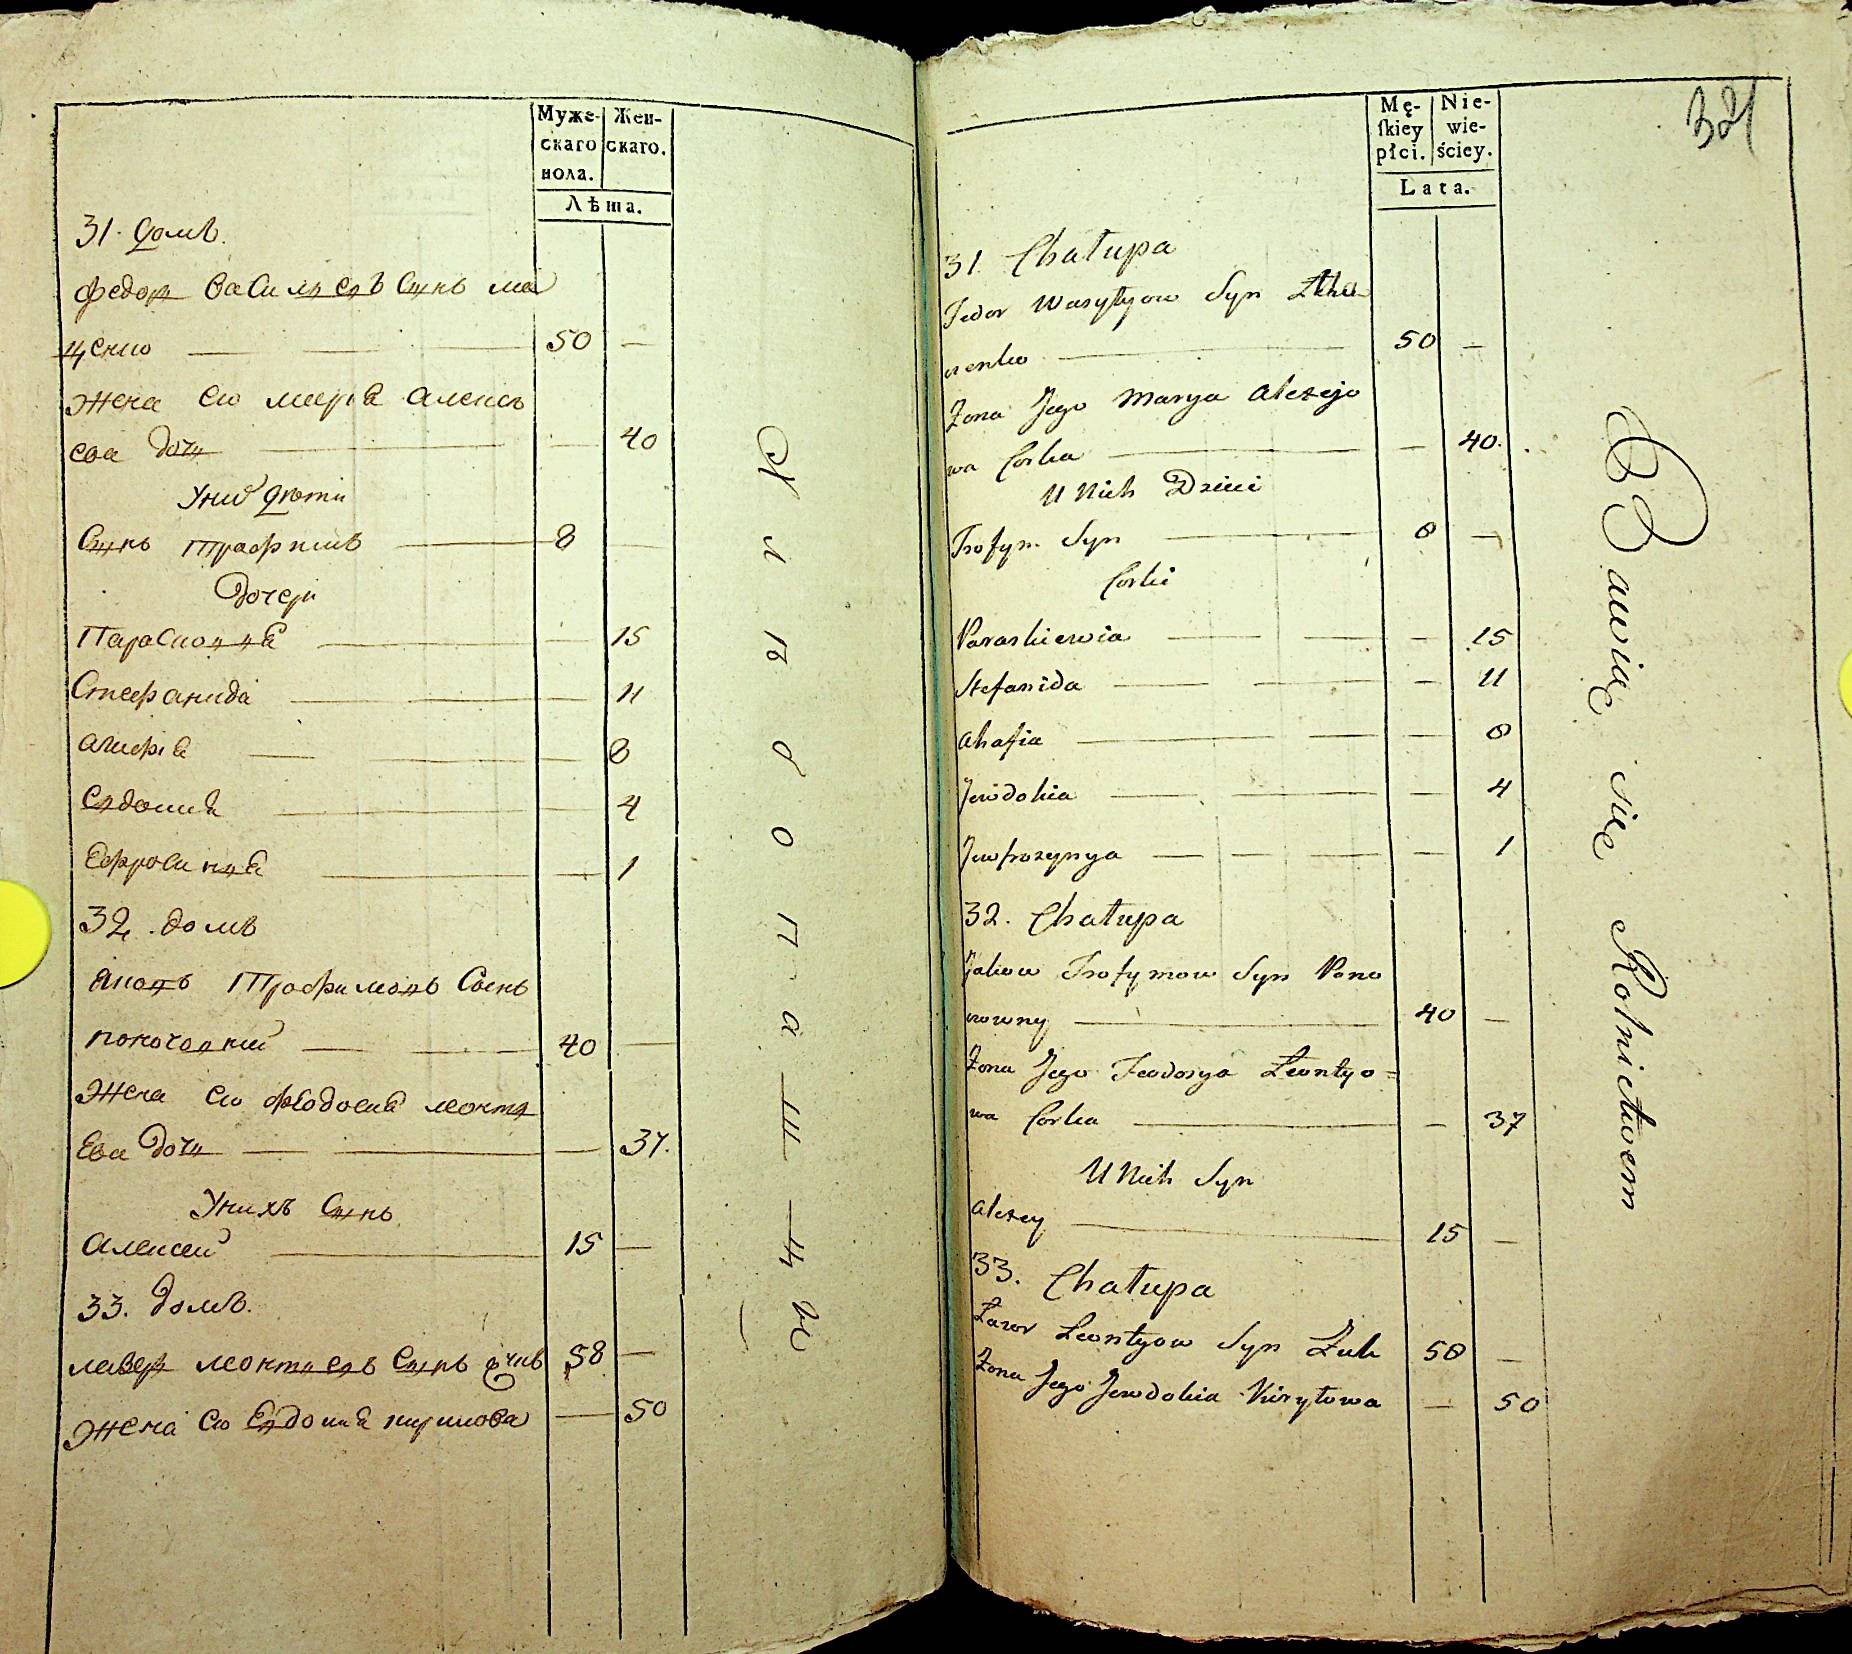 Муже-
скаго
пола.
Жен-
скаго.
Лѣта.
31. домъ.
федор василиевъ сынъ
50 —
жена ево мариа алексѣ
ева дочь — 40
Униѯ дѣти
Сынъ трофимъ 8 —
Дочери
Парасковиа — 15
Стефанида — 11
агафиа — 8
Евдокиа — 4
Ефросиниа — 1
32. домъ
яковъ Трофимовъ Сынъ
40 —
жена ево феодосиа леонти
Ева дочь — 37.
Унихъ Сынъ
Алексей 15 —
33. домъ.
лавер леонтиевъ Сынъ 58 —
жена ево Евдокиа кирилова — 50
Хлѣбопашцы
Mę-
ſkiey
płci.
Nie-
wie-
ściey.
Lata.
31 Chałupa
Fedor Wasylyow Syn
50 —
Żona Jego Marya Alexejo
wa Corka — 40.
U Nich Dzieci
Trofym Syn 8 —
Corki
Paraskiewia — 15
Stefanida — 11
Ahafia — 8
Jewdokia — 4
Jewfrozynya — 1
32. Chałupa
Jakow Trofymow Syn Pono
40 —
Żona Jego Feodosya Leontyo=
wa Corka — 37
U Nich Syn
Alexey 15 —
33. Chałupa
Ławor Leontyow Syn Żuk 58 —
Żona Jego Jewdokia Kiryłowa — 50
Bawią się Rolnictwem